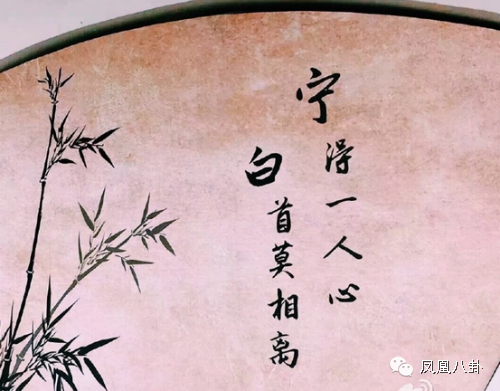 宁得一人心
白首莫相离
凤凰八卦